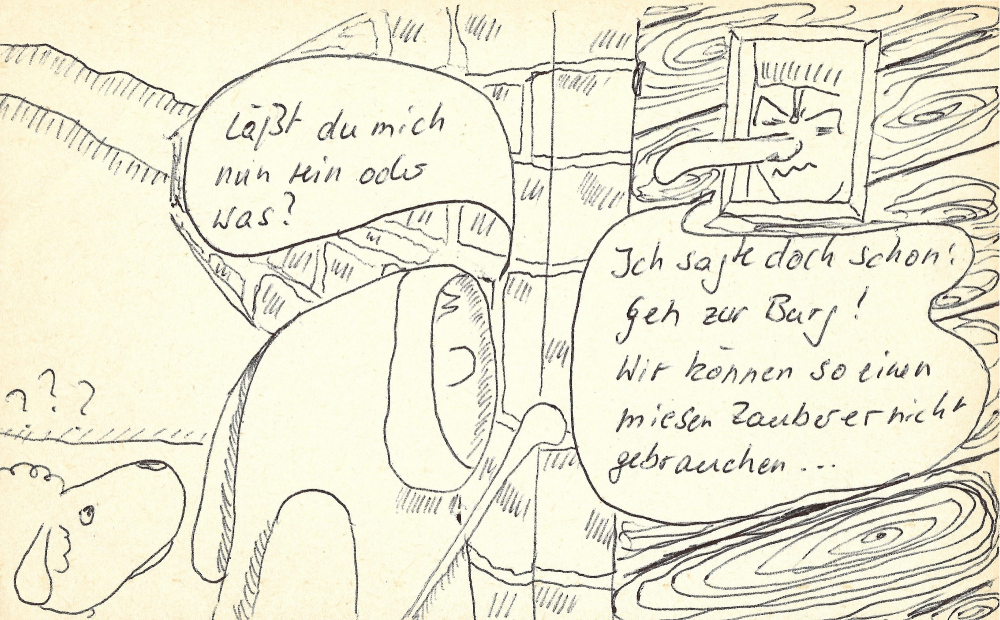 Läßt du mich
nun rein oder
was?
Ich sagte doch schon:
Geh zur Burg!
Wir können so einen
miesen Zauberer nicht
gebrauchen...
???